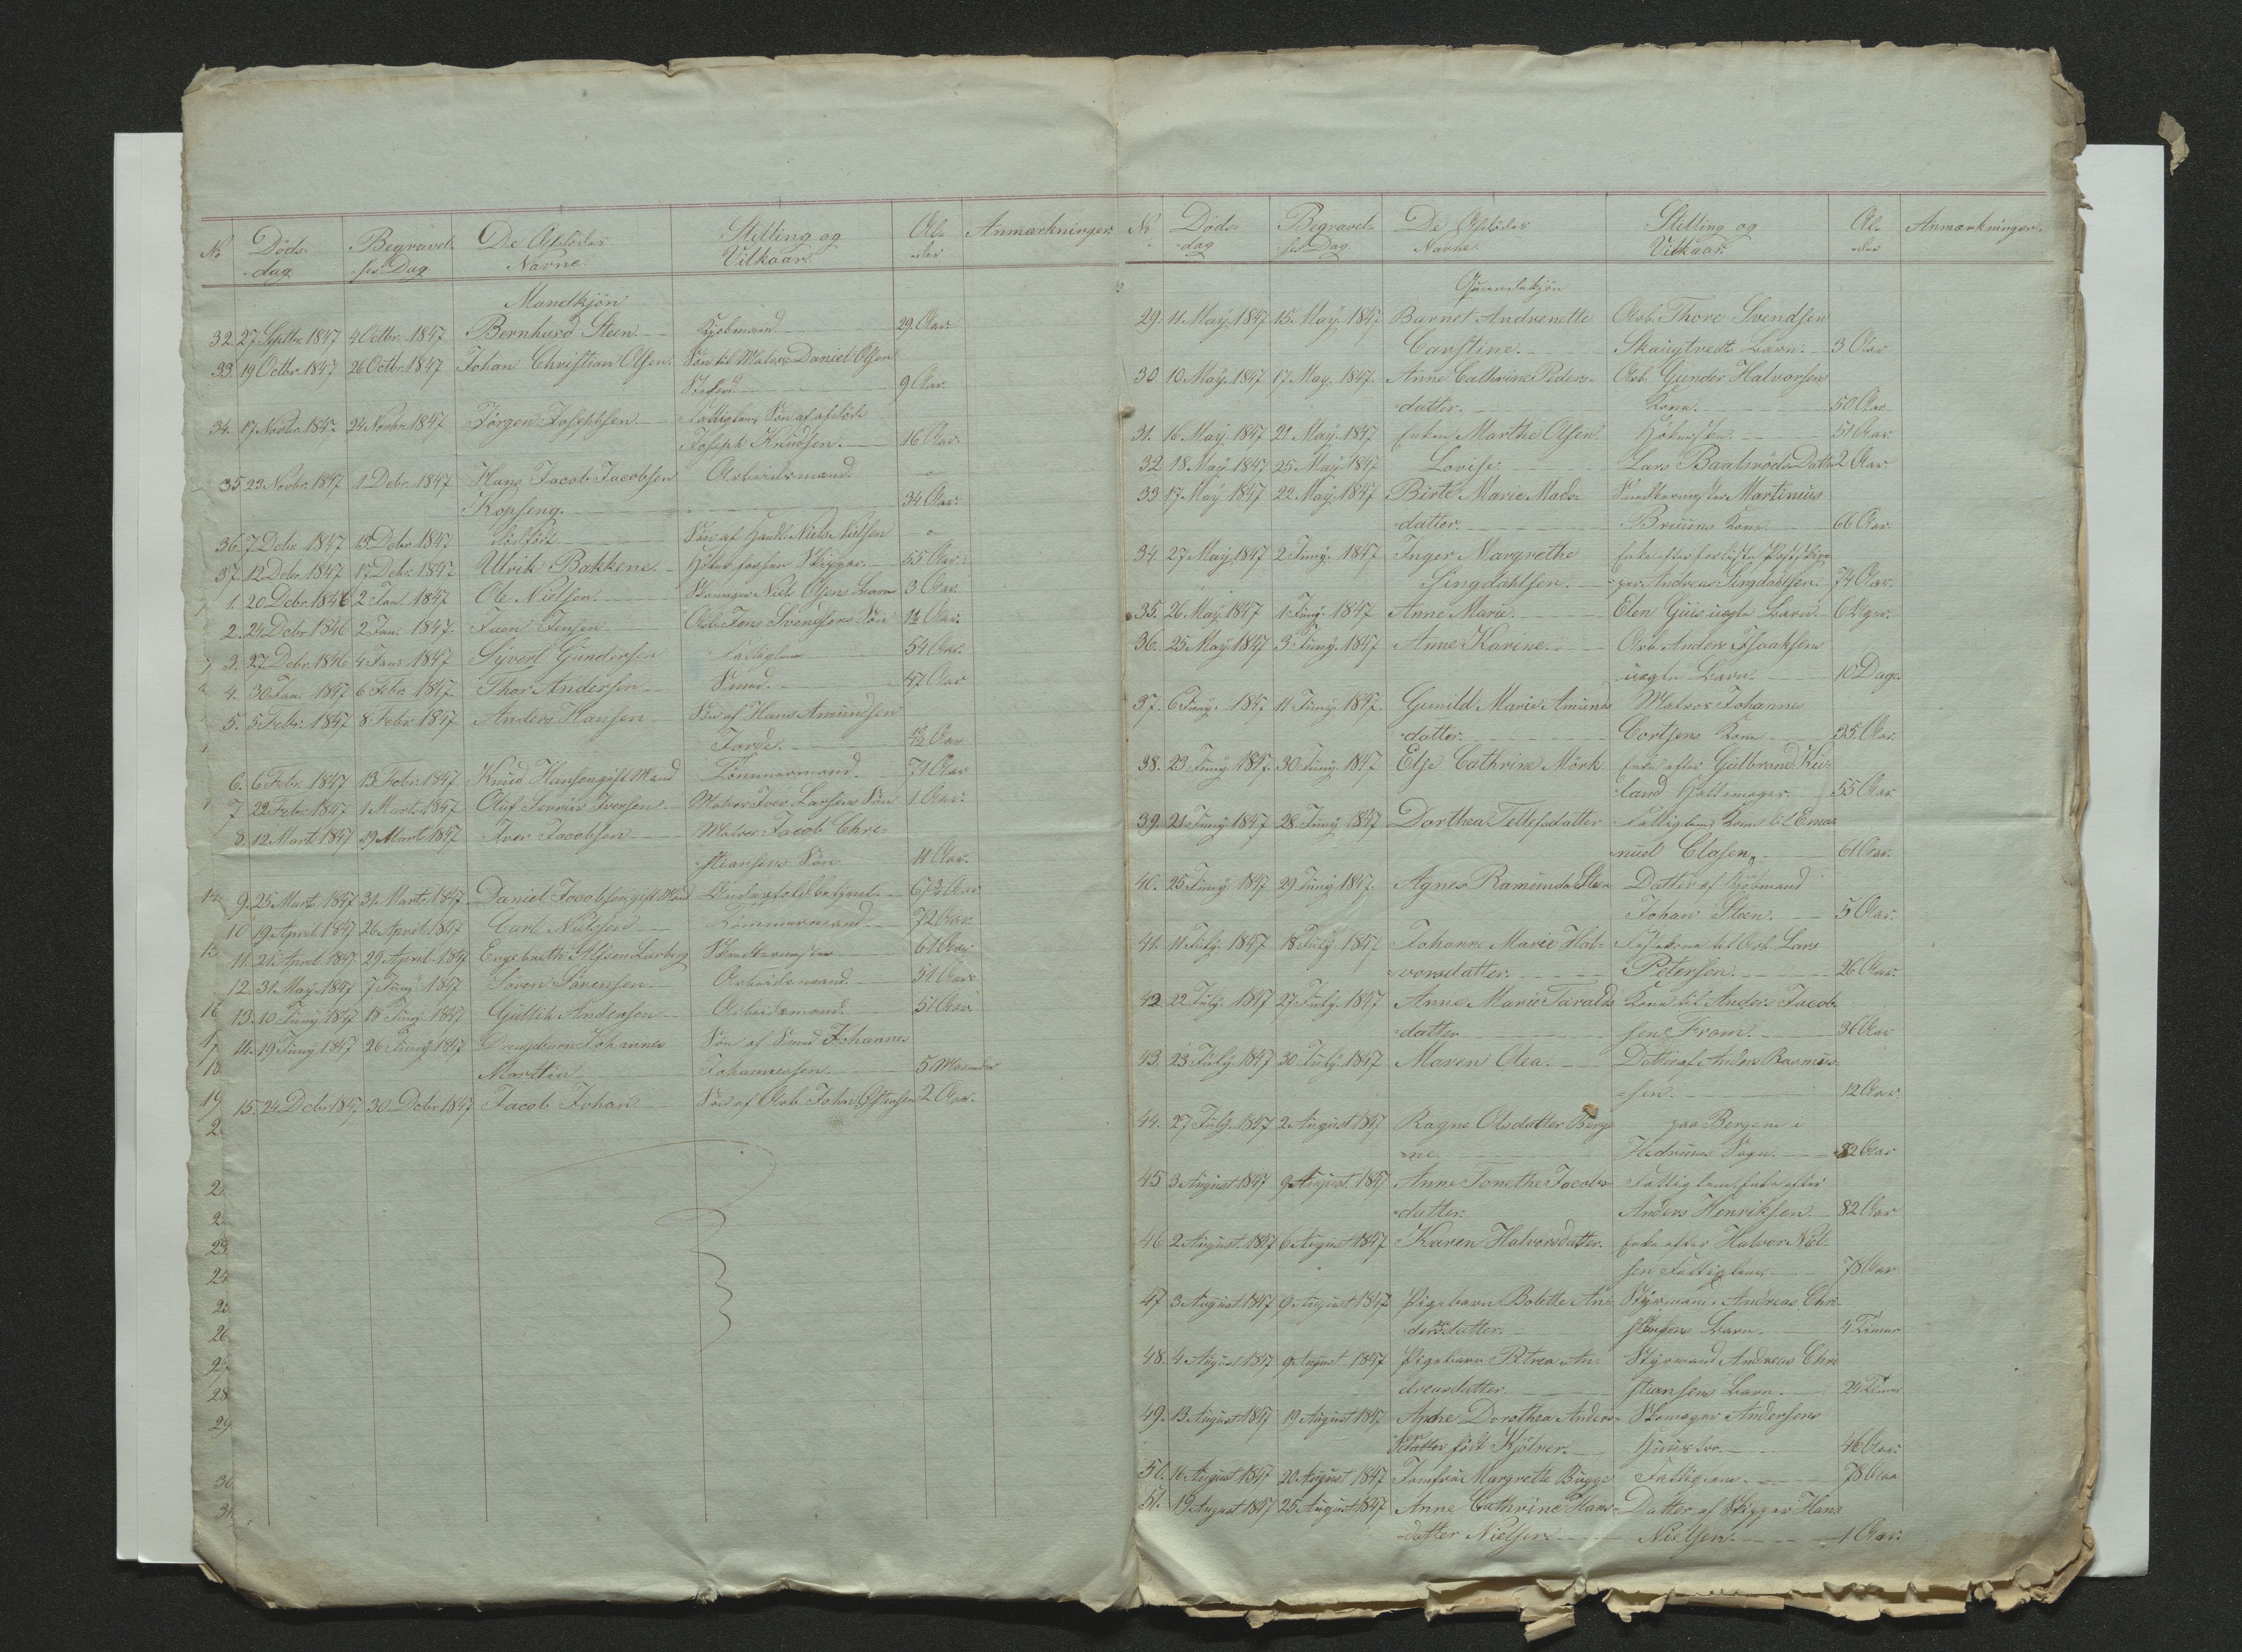 No Döds- Begravel- De Afdödes Stilling og Al- Anmærkninger
dag ses Dag Navne. Vilkaar der
Mandkjön
32 27 Septbr. 1847 4 Octbr. 1847 Bernhard Steen. Kjøbmand 29. Aar.
33. 19 Octbr. 1847 26 Octbr. 1847 Johan Christian Olsen. Søn til Matros Daniel Olsen
9 Aar.
34. 17 Novbr. 1847 24 Novbr. 1847 Jörgen Josephsen Fattiglem, Søn af afdöde
Joseph Knudsen. 16 Aar.
35 23 Novbr. 1847 1 Debr. 1847 Hans Jacob Jacobsen Arbeidsmand
Kopseng. 34 Aar.
36. 7 Debr. 1847 13 Debr. 1847 Dödfödt Søn af Niels Nielsen
37. 12 Debr. 1847 17 Debr. 1847 Ulrik Bakkene Skipper 55 Aar.
1. 20 Debr. 1846 2 Jan. 1847 Ole Nielsen Skomager Niels Olsens Barn 3 Aar.
2. 24 Debr. 1846 2 Jan. 1847. Jens Svendsens Søn Aar.
3. 27 Debr. 1846 4 Jan. 1847 Syvert Gundersen Fattiglem 54 Aar.
4. 30 Jan. 1847 6 Febr. 1847 Thor Andersen Smed. 47 Aar
5. 5 Febr. 1847 8 Febr. 1847 Anders Hansen Søn af Hans Amundsen
Aar
6. 6 Febr. 1847 13 Febr. 1847 Knud Hansen gift Mand Tömmermand. 71 Aar
7 22 Febr. 1847 1 Marts 1847 Oluf Iversen Matros Iver Larsens Søn 1 Aar.
8. 12 Marts 1847 19 Marts 1847 Iver Jacobsen Matros Jacob Chri-
stiansens Søn 11 Aar.
9. 25 Marts 1847 31. Marts 1847 Daniel Jacobsen gift Mand Aar
10 19 April 1847 26 April 1847 Carl Nielsen Tömmermand 72 Aar.
11. 21. April 1847. 29 April 1847 Engebreth 61 Aar
12. 31. May 1847 7 Juny 1847 Sören Sörensen Arbeidsmand 51 Aar
13. 10 Juny 1847 18 Juny 1847 Gullik Andersen Arbeidsmand 51 Aar
14. 19 Juny 1847 26 Juny 1847 Drengebarn Johannes Søn af Smed Johannes
Martin Johannessen. 5 Maaneder
15. 24 Debr 1847 30 Debr 1847 Jacob Johan Søn af Arb. John 2 Aar.
No Döds- Begravel- De Afdödes Stilling og Al- Anmærkninger.
dag ses Dag Navne. Vilkaar. der
Qvindekjön
29. 11 May. 1847 15 May. 1847 Barnet Andrenette Arb. Thore Svendsen
Carstine. Barn. 3 Aar
30 10 May. 1847 17 May. 1847. Anne Cathrine Peders- Arb. Gunder Halvorsens
datter. Kone. 50 Aar
31. 16 May. 1847 21 May. 1847 Enken Marthe Olsen. 51 Aar.
32 18 May 1847 25 May. 1847 Lovise Lars Datter 2 Aar.
33 17 May 1847 22 May. 1847 Birte Marie Mads- Martinius
datter. Bruuns Kone 66 Aar.
34. 27 May. 1847 2 Juny. 1847 Inger Margrethe Enke efter
Singdahlsen. Andreas Singdahlsen. 74 Aar.
35. 26 May. 1847 1 Juny. 1847 Anne Marie. Elen uægte Barn.
36. 25 May. 1847 3 Juny. 1847 Anne Karine. Arb. Anders Isaaksens
uægte Barn. 10 Dage
37. 6 Juny. 1847 11 Juny 1847. Gunild Marie Amunds Matros Johannes
datter. Kone 35. Aar.
38. 23 Juny 1847. 30 Juny 1847 Else Cathrine Mörk Enke efter Gulbrand
55 Aar
39. 21 Juny 1847 28 Juny 1847 Dorthea Tellefsdatter Fattiglem, Kone til Ema-
nuel Clasen, 61 Aar.
40. 25 Juny 1847 29 Juny 1847. Agnes Ramunda Steen Datter af Kjöbmand
Johan Steen. 5 Aar.
41. 11 July. 1847 18 July. 1847 Johanne Marie Hal- til Arb. Lars
vorsdatter. Petersen. 26 Aar.
42 22 July. 1847 27 July. 1847. Anne Marie Taralds Kone til Anders Jacob-
datter. sen Fram. 36 Aar
43 23 July. 1847 30 July. 1847 Maren Olea. Datter af Anders Rasmus-
sen. 12 Aar.
44. 27 July. 1847 2 August 1847 Ragne Olsdatter Berge- paa Bergene i
ne. Hedrums Sogn. 82 Aar
45 3 August 1847 9 August 1847 Anne Tonethe Jacobs- Fattiglem, Enke efter
datter. Anders Henriksen. 82 Aar
46 2 August. 1847 6 August 1847 Karen Halvorsdatter. Enke efter Halvor Niel-
sen Fattiglem. 78 Aar
47 3 August 1847 9 August 1847 Pigebarn Bolette An- Styrmand Andreas Chri-
datter. Barn. 4 Timer
48. 4 August 1847 9 August 1847 Pigebarn Petrea An- Styrmand Andreas Chri
dreasdatter. stiansens Barn. 24 Timer
49. 13 August 1847 19 August 1847 Andre Dorothea Anders- Skomager Andersens
datter födt Kjölner. Hustro. 46 Aar.
50. 16 August 1847 20 August 1847 Jomfru Margrethe Bugge Fattiglem. 78 Aar
51. 19 August 1847 25 August 1847 Anne Cathrine Hans- Datter af Skipper Hans
datter Nielsen. Nielsen. 1 Aar.